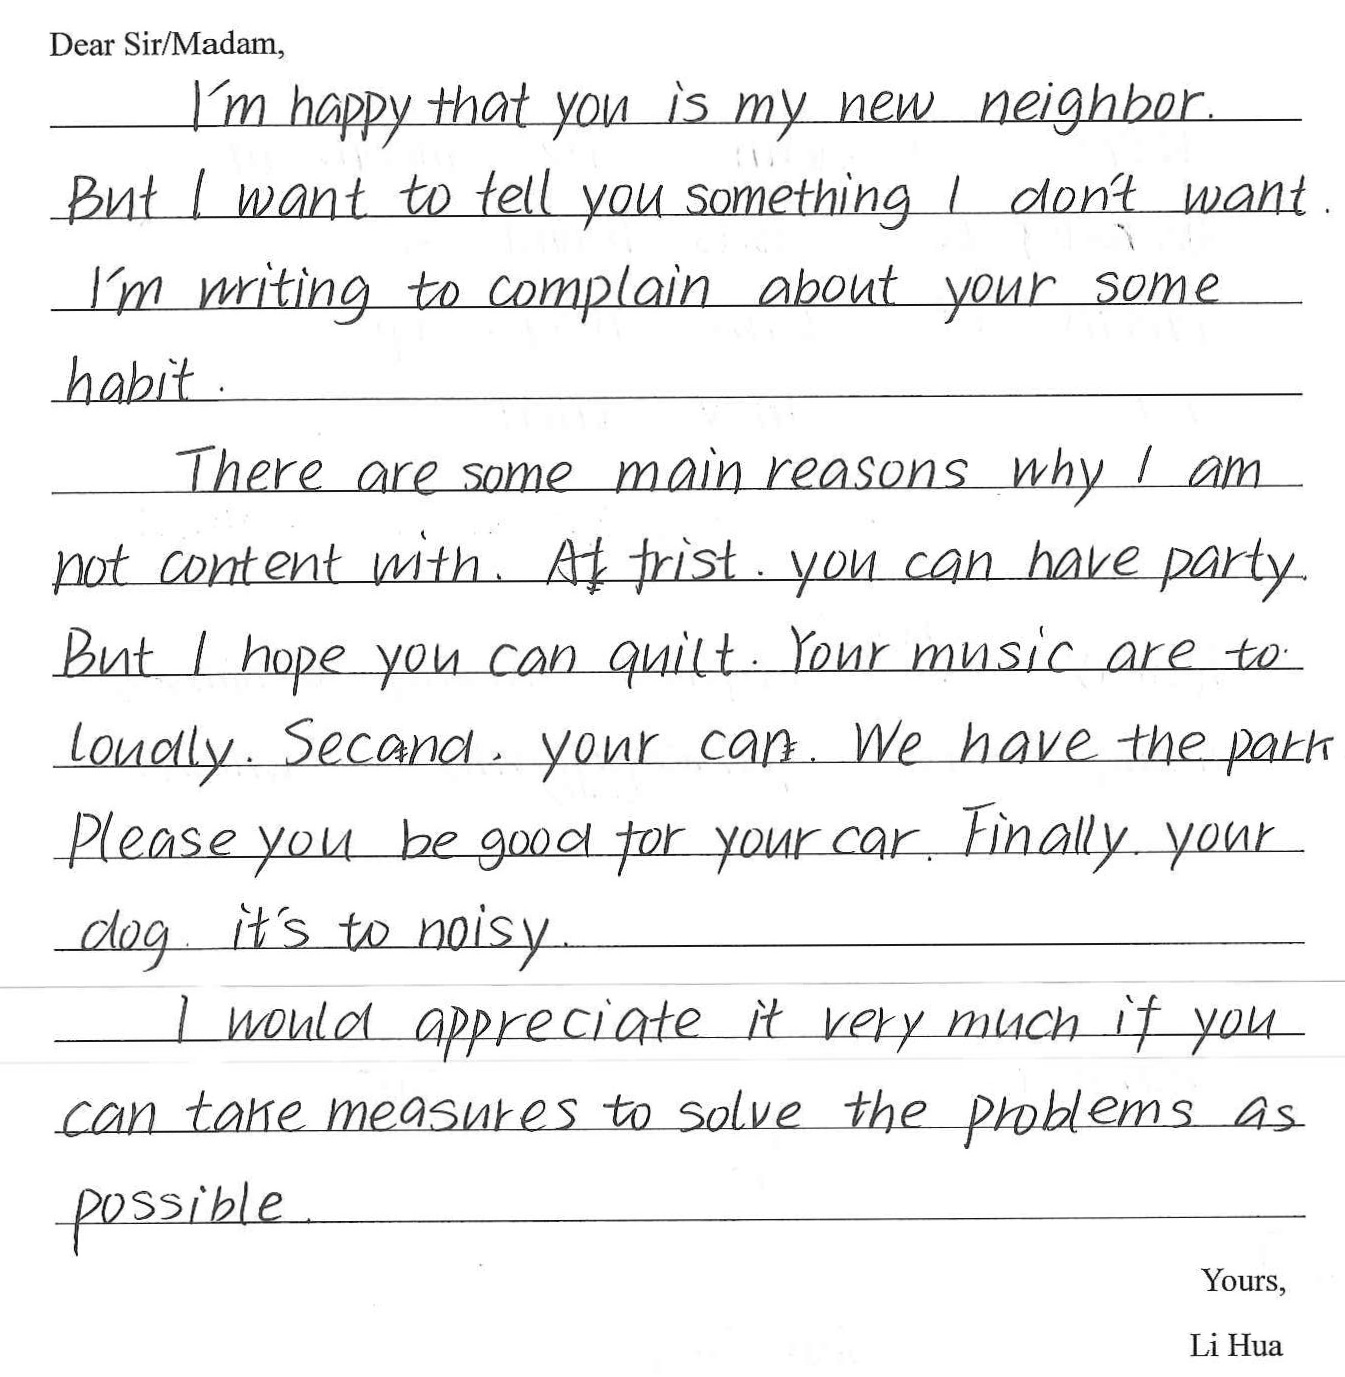 Dear Sir/Madam,
I'm happy that you is my new neighbor.
But I want to tell you something I don't want.
I'm writing to complain about your some
habit.
There are some main reasons why I am
not content with. At frist. you can have party.
But I hope you can quilt. Your music are to
loudly. Secand, your car. We have the park
Please you be good for your car. Finally. your
dog. it's to noisy.
I would appreciate it very much if you
can take measures to solve the problems as
possible.
Yours,
Li Hua